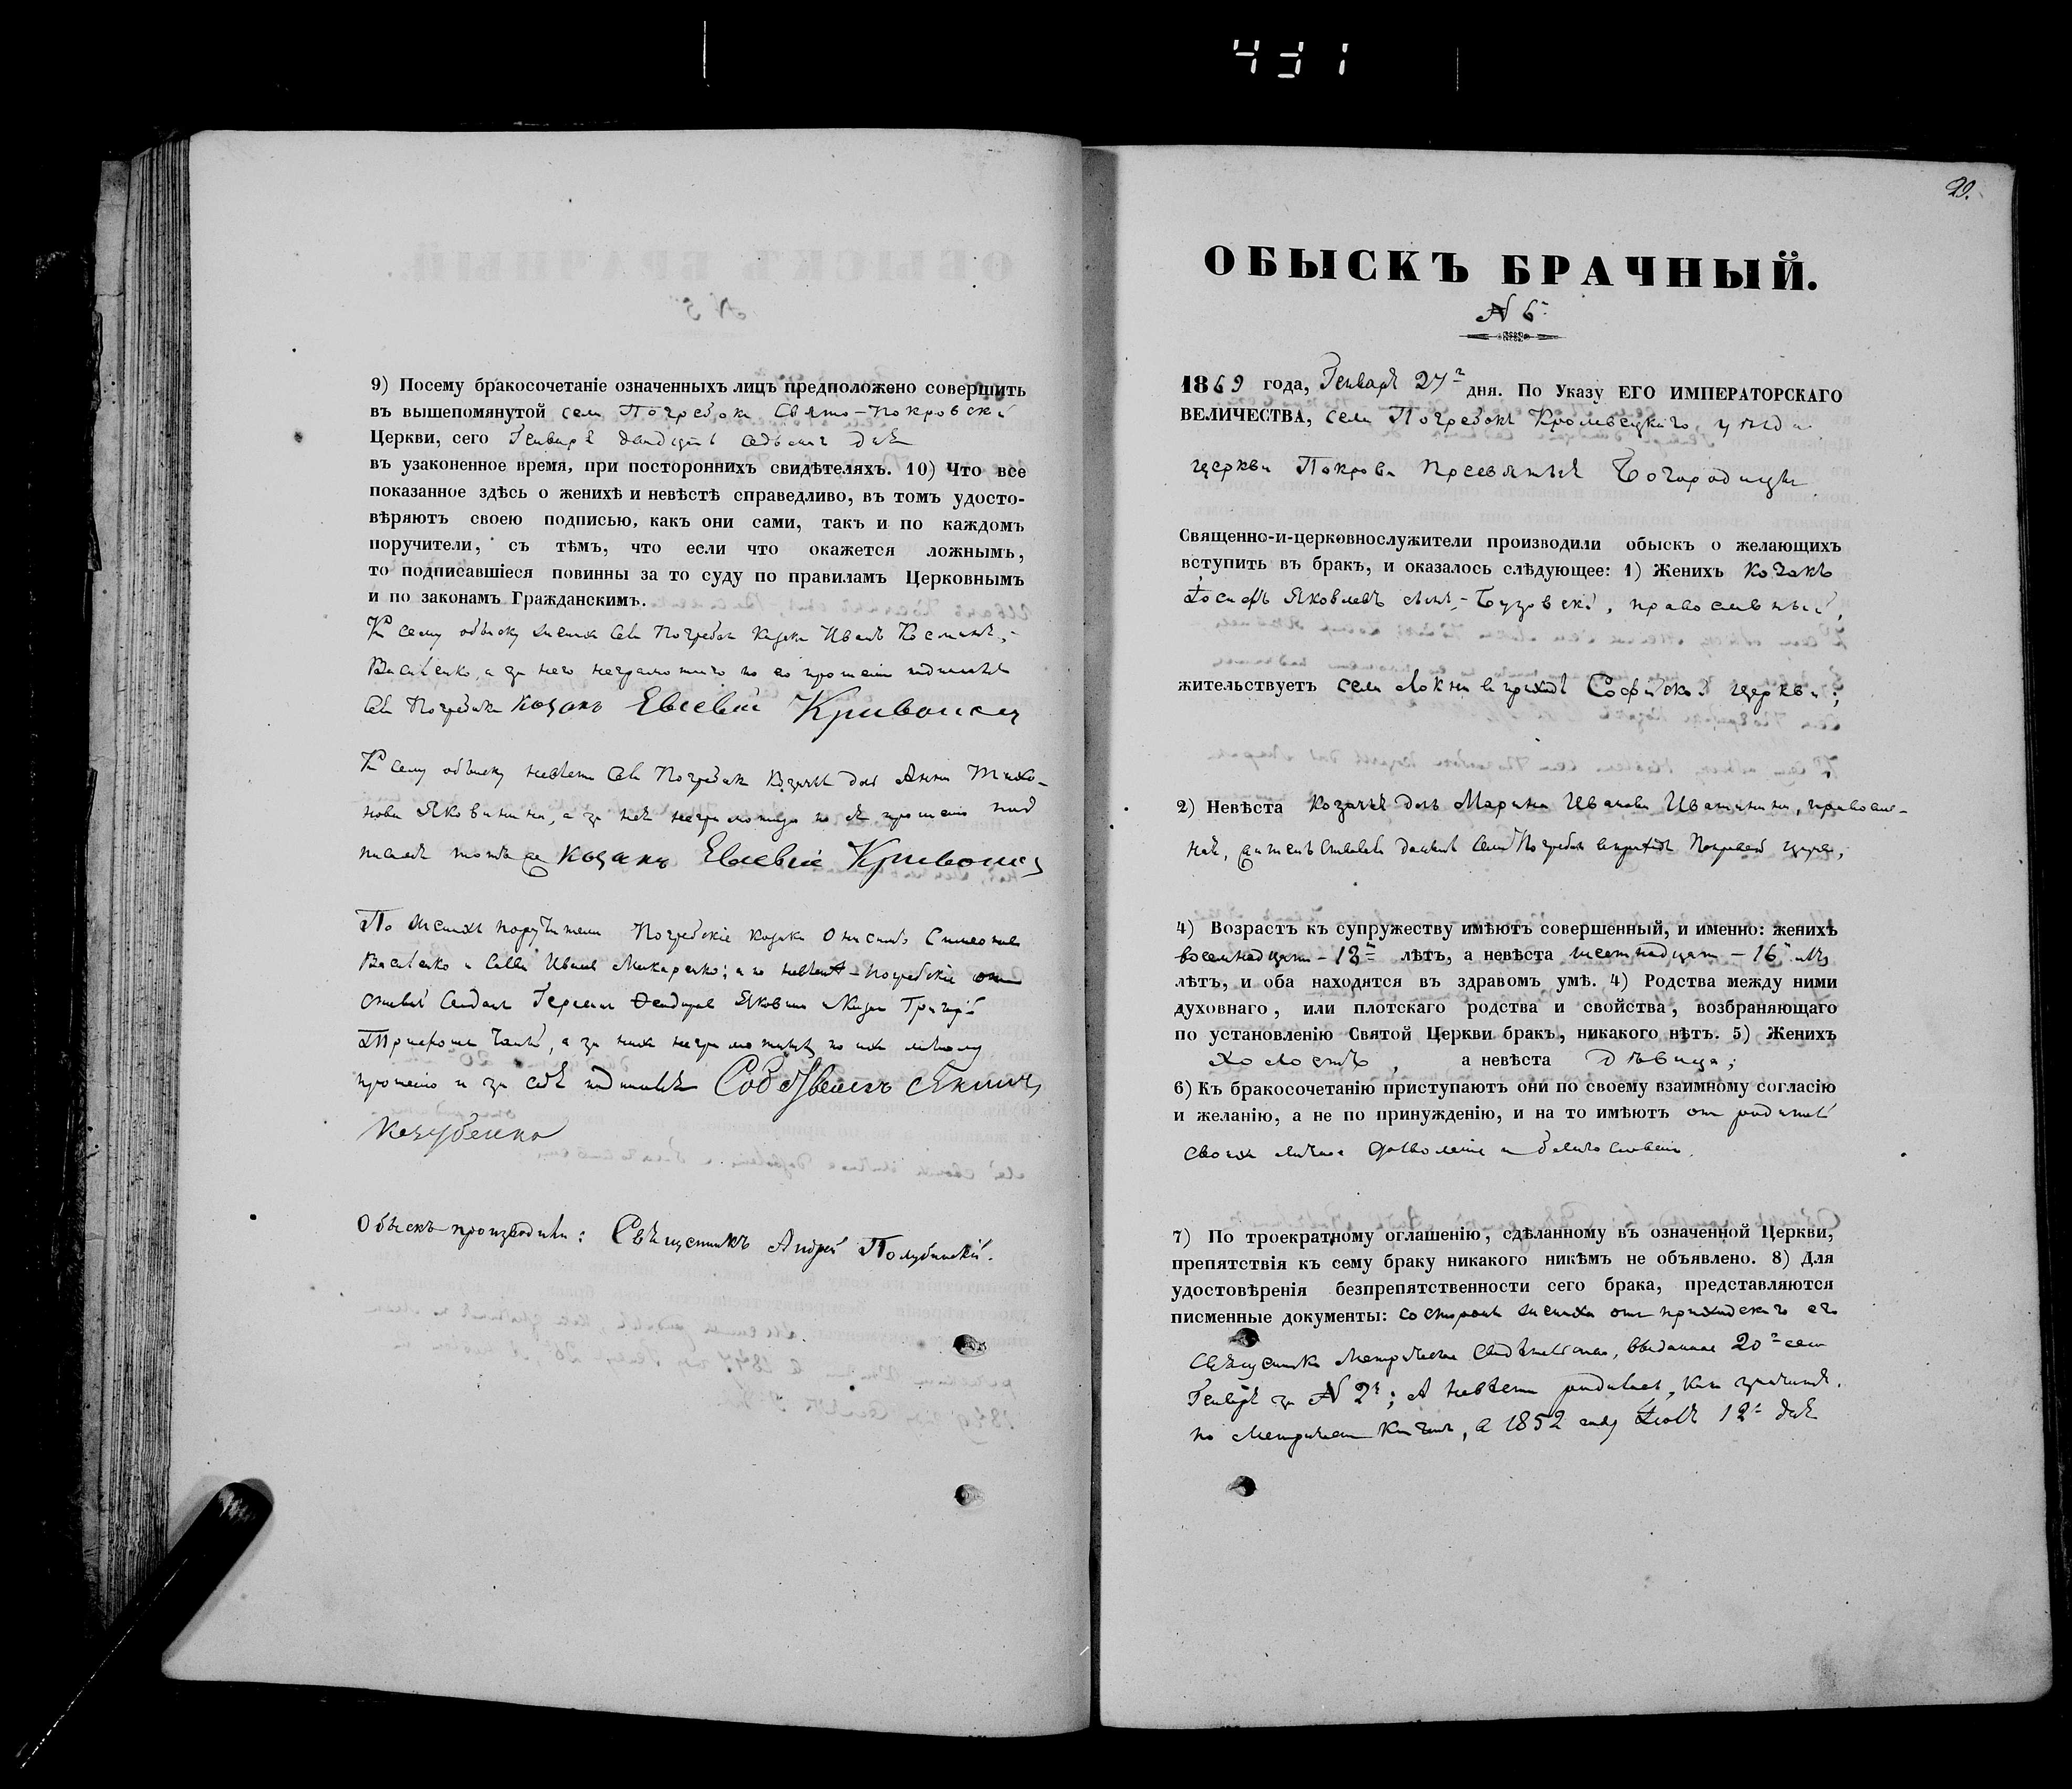 431
9) Посему бракосочетаніе означенныхъ лицъ предположено совершить
въ вышепомянутой села Погребокъ Свято-Покровской
Церкви, сего Генваря двадцать седьмаго дня
въ узаконенное время, при постороннихъ свидѣтеляхъ. 10) Что все
показанное здѣсь о женихѣ и невѣстѣ справедливо, въ томъ удосто-
вѣряютъ своею подписью, какъ они сами, такъ и по каждомъ
поручители, съ тѣмъ, что если что окажется ложнымъ,
то подписавшіеся повинны за то суду по правиламъ Церковнымъ
и по законамъ Гражданскимъ.
К сему обыску женихъ села Погребокъ козакъ Иванъ Косминъ,-
Василенко, а за него неграмотнаго по его прошенію подписался
села Погребокъ Козакъ Евсевій Кривонося
К сему обыску невѣста села Погребокъ Козачья дочь Анна Тихо-
нова Яковинина, а за неё неграмотную по её прошенію под
писался тотъ же козакъ Евсевій Кривонося
По женихѣ поручители Погребскіе козаки Онисимъ Симеоновъ
Василенко и Савва Ивановъ Макаренко; а по невѣстѣ - Погребскіе
Герасимъ Феодоровъ Яковинъ и Козакъ Григорій
Трифоновъ, а за нихъ неграмотныхъ по ихъ личному
прошенію и за себя подписался
Козубенко
Обыскъ производили: Священникъ Андрей Полубинскій.
29.
ОБЫСКЪ БРАЧНЫЙ.
N 6.
1869 года, Генваря 27 дня. По Указу ЕГО ИМПЕРАТОРСКАГО
ВЕЛИЧЕСТВА, села Погребокъ Кролевецкаго, уѣзда
церкви Покрова Пресвятыя Богородицы
Священно-и-церковнослужители производили обыскъ о желающихъ
вступить въ бракъ, и оказалось слѣдующее: 1) Женихъ козакъ
Іосифъ Яковлевъ сынъ,- Бузовскій, православный,
жительствуетъ села Локни въ приходѣ Софійской церкви;
2) Невѣста Козачья дочь Марина Иванова Ивашинина, православ-
ная, жительствовала доселѣ села Погребокъ въ приходѣ Покровской церкви;
4) Возрастъ къ супружеству имѣютъ совершенный, и именно: женихъ
восемнадцать - 18 лѣтъ, а невѣста шестнадцать - 16 лѣтъ
лѣтъ, и оба находятся въ здравомъ умѣ. 4) Родства между ними
духовнаго, или плотскаго родства и свойства, возбраняющаго
по установленію Святой Церкви бракъ, никакого нѣтъ. 5) Женихъ
холостъ, а невѣста дѣвица;
6) Къ бракосочетанію приступаютъ они по своему взаимному согласію
и желанію, а не по принужденію, и на то имѣютъ от родителей
своихъ личное дозволеніе и благословеніе.
7) По троекратному оглашенію, сдѣланному въ означенной Церкви,
препятствія къ сему браку никакого никѣмъ не объявлено. 8) Для
удостовѣренія безпрепятственности сего брака, представляются
писменные документы: со стороны жениха отъ приходскаго его
священника Метрическое свидѣтельство, выданное 20 сего
Генваря за N 2; а невѣста родилась, какъ значится
по Метрическимъ Книгамъ, в 1852 году Іюля 12 дня